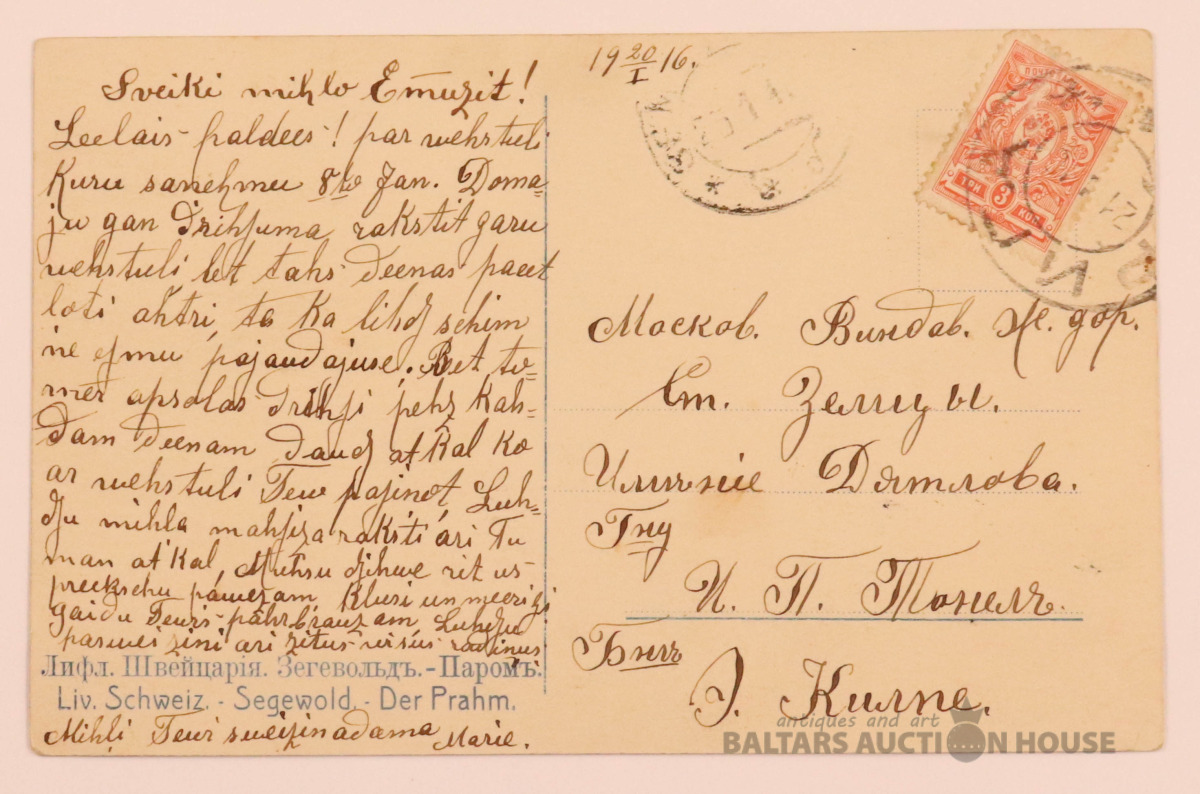 19 20/I 16.
Sveiki mihļo Emuzit!
Leelais paldees! par wehstuli
Kuru sanehmu 8to Jan. Doma-
ju gan drihsuma rakstit garu
wehstuli bet tahs deenas paeet
loti ahtri, ta Ka lihdz schim
ne esmu pajaudajuse. Bet to-
mer apsolas drihsi pehz Kah-
dam deenam daudz atkal ko
ar wehstuli Tew pazinot Luh-
dzu mihla mahsiza raksti ari Tu
man atkal, Muhsu dzihwe rit us
preekschu pamazam Klusi un meerigi
gaidu Tewi pahrbrauzam Luhdzu
pasweizini ari zitus wisus radinus
Лифл. Швейцарія. Зегевольдъ. - Паромъ.
Liv. Schweiz. - Segewold. - Der Prahm.
Mihļi Tewi sweizinadama Marie.
ПОЧТ
ТОН 3 КОП
Москов. Виндав. Ж. дор.
Ст. Земцы.
Имѣніе Дятлова.
Гну
И. П. Тонелъ.
Для
Э. Килпе.
antiques and art
BALTARS AUCTION HOUSE